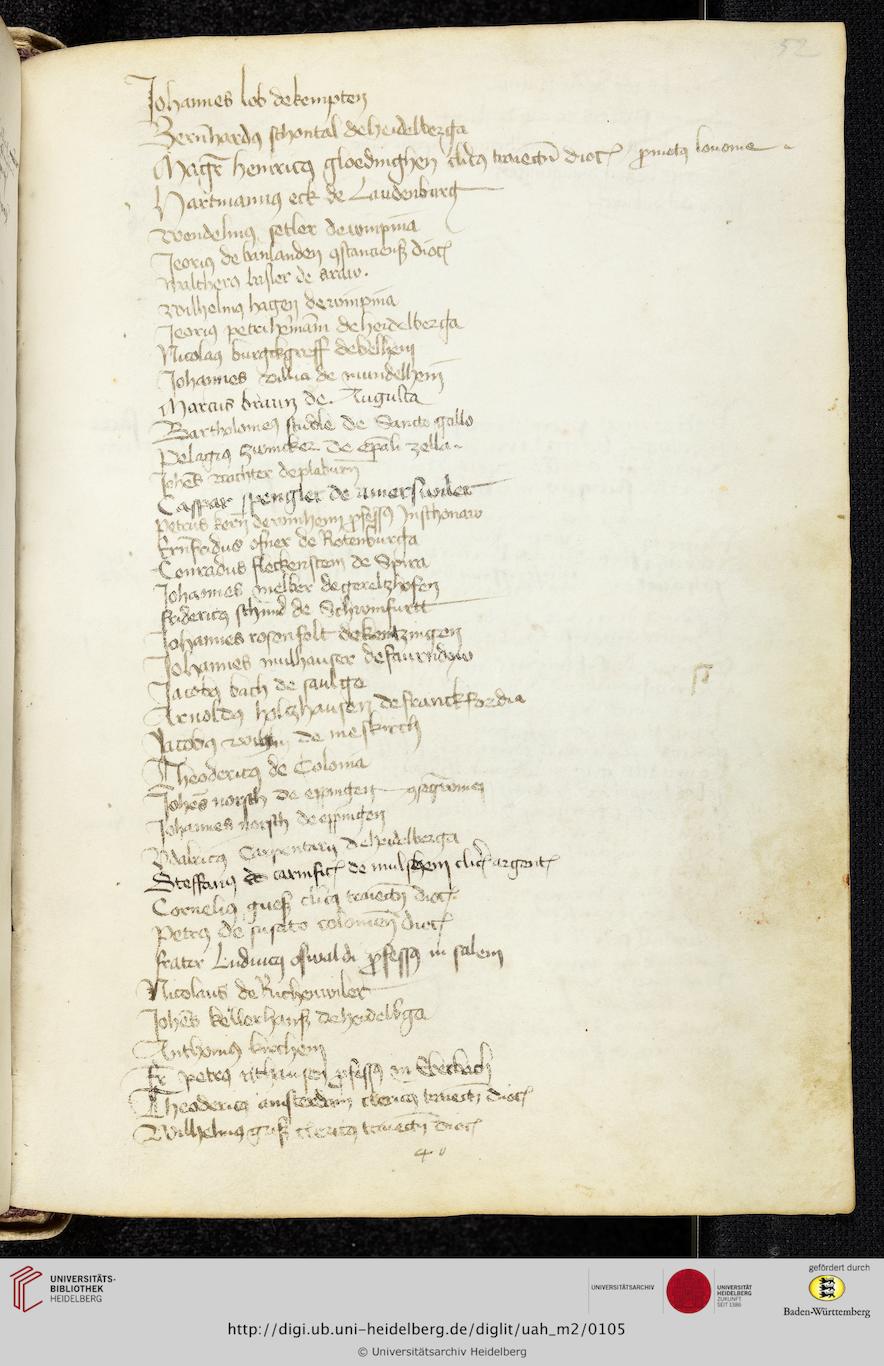 52
Johannes lob de kempten
Bernhardus schontal de heidelberga
Magr henricus gloedinghen clicus traiecten dioc promotus
Hartmannus eck de Laudenburg
Wendelinus setler de wimpina
Jeorius de banlanden 9stanciens dioc
Waltherus basler de araw.
Wilhelmus hagen de wimpina
Jeorius petri de heidelberga
Nicolaus burgkgreff de
Johannes de mundelheim
Marcus braun de Augusta
Bartholomeus studle de Sancto gallo
Pelagius zwincker de epali zella
Johes wachter de
Caspar spengler de amerswiler
petrus kern de winheim professus in schonaw
Ernfridus ofner de Rotenburga
Conradus fleckenstem de Spira
Johannes melber de gereltzhofen
fridericus schmid de Schwinfurtt
Johannes rosenfelt de kentzingen
Johannes mulhauser de
Jacobus bach de saulga
Arnoldus holtzhausen de franckfordia
Jacobus de meskirch
Theodericus de Colonia
Johes norsch de eppingen
Johannes norsch de eppingen
Vdalricus Carpentarij de heidelberga
Steffanus de carnific de mulshem clic argent
Cornelius clicus traiecten dioc
petrus de susato colonien dioc
frater Ludwicus oswaldi professus in salem
Nicolaus de Richenwiler
Johes kellerhans de heidelberga
Anthonius kirchem
Fr petrus professus in Eberbach
Theodericus amsterdam clericus traiecten dioc
Wilhelmus clericus traiecten dioc
UNIVERSITÄTS-
BIBLIOTHEK
HEIDELBERG
UNIVERSITÄTSARCHIV
UNIVERSITÄT
HEIDELBERG
ZUKUNFT
SEIT 1386
gefördert durch
Baden-Württemberg
http://digi.ub.uni-heidelberg.de/diglit/uah_m2/0105
© Universitätsarchiv Heidelberg